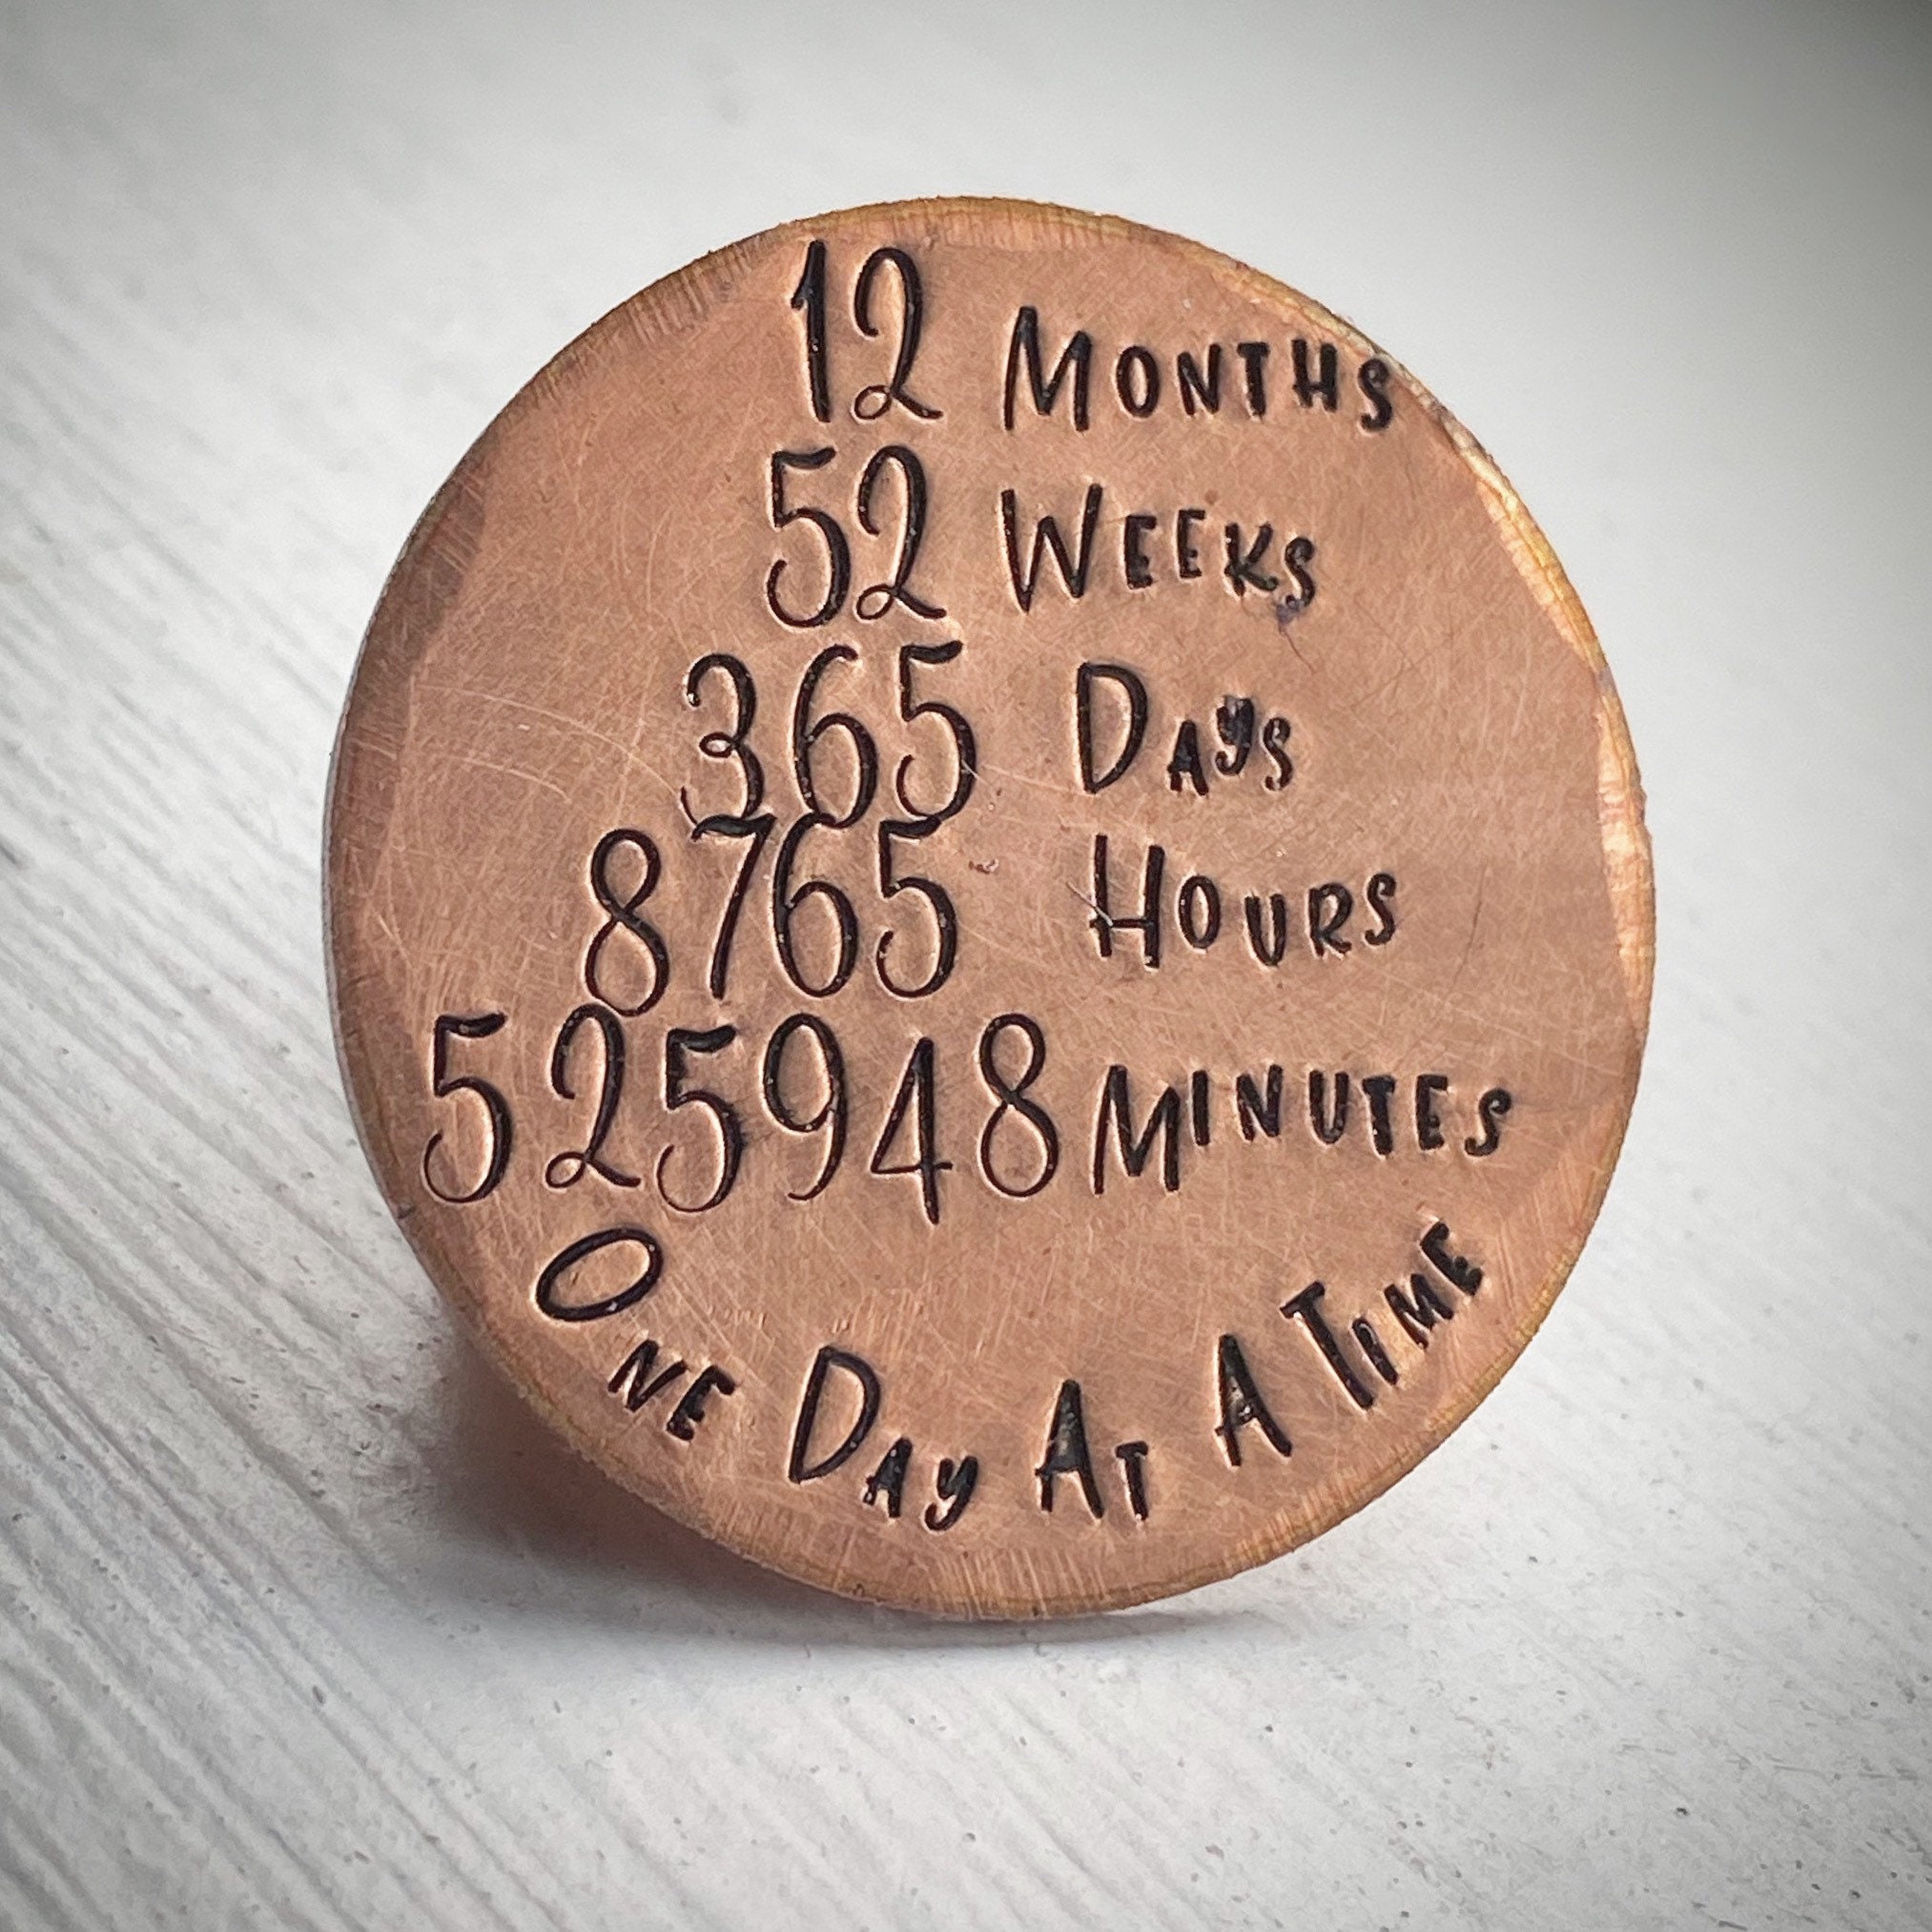 12 MONTHS
52 WEEKS
365 DAYS
8765 HOURS
525948 MINUTES
ONE DAY AT A TIME